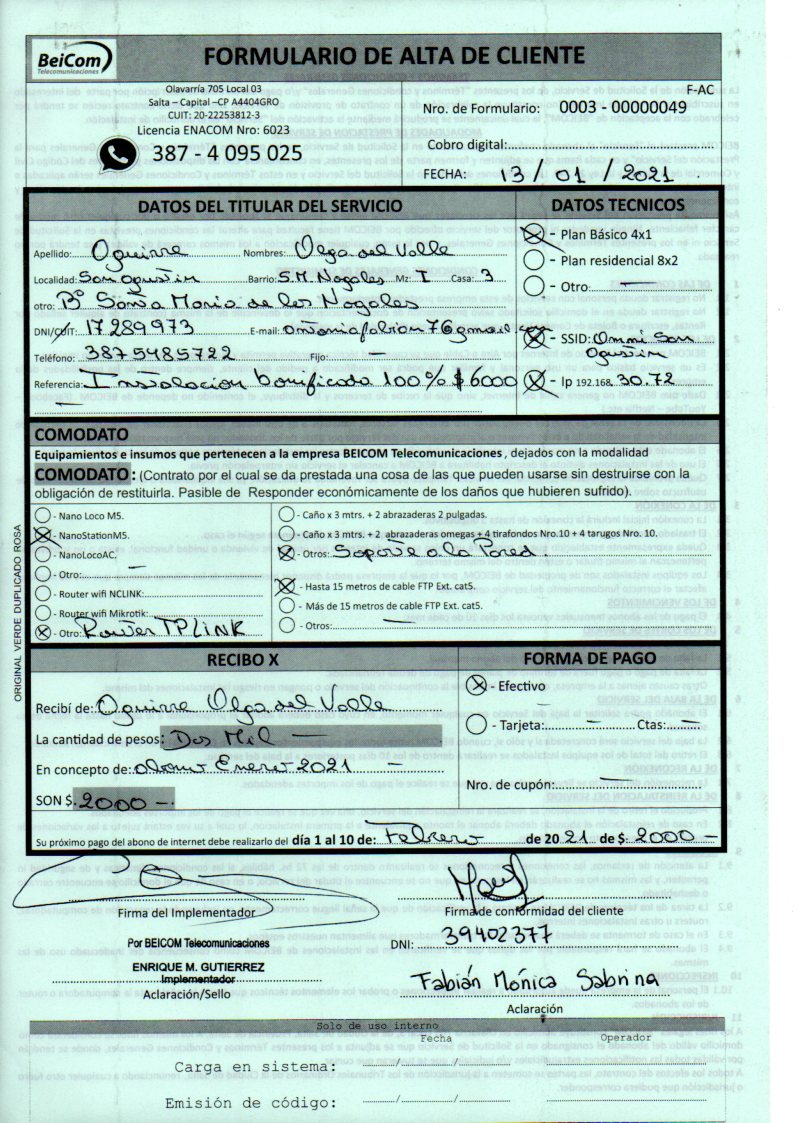 BeiCom
Telecomunicaciones
FORMULARIO DE ALTA DE CLIENTE
Olavarría 705 Local 03
Salta – Capital –CP A4404GRO
CUIT: 20-22253812-3
Licencia ENACOM Nro: 6023
387 - 4 095 025
F-AC
Nro. de Formulario: 0003 - 00000049
Cobro digital:
FECHA: 13 / 01 / 2021
DATOS DEL TITULAR DEL SERVICIO
Apellido: Aguirre Nombres: Olga del Valle
Localidad: San Agustin Barrio: S.M. Nogales Mz: I Casa: 3
otro: B° Santa Maria de los Nogales
DNI/CUIT: 17289973 E-mail:
Teléfono: 3875485722 Fijo: —
Referencia: Instalacion bonificada 100% $ 6000
—
DATOS TECNICOS
X - Plan Básico 4x1
- Plan residencial 8x2
- Otro: —
X - SSID: Omni San
Agustin
X - Ip 192.168. 30.72
COMODATO
Equipamientos e insumos que pertenecen a la empresa BEICOM Telecomunicaciones, dejados con la modalidad
COMODATO: (Contrato por el cual se da prestada una cosa de las que pueden usarse sin destruirse con la
obligación de restituirla. Pasible de Responder económicamente de los daños que hubieren sufrido).
- Nano Loco M5.
X - NanoStationM5.
- NanoLocoAC.
- Otro: —
- Router wifi NCLINK:
- Router wifi Mikrotik:
X - Otro: Router TPLINK
- Caño x 3 mtrs. + 2 abrazaderas 2 pulgadas.
- Caño x 3 mtrs. + 2 abrazaderas omegas + 4 tirafondos Nro.10 + 4 tarugos Nro. 10.
X - Otros: Soporte a la Pared
X - Hasta 15 metros de cable FTP Ext. cat5.
- Más de 15 metros de cable FTP Ext. cat5.
- Otros: —
ORIGINAL VERDE DUPLICADO ROSA
RECIBO X
Recibí de: Aguirre Olga del Valle
La cantidad de pesos: Dos Mil —
En concepto de: abono Enero 2021 —
SON $. 2000 —.
FORMA DE PAGO
X - Efectivo
- Tarjeta: — Ctas: —
Nro. de cupón: —
Su próximo pago del abono de internet debe realizarlo del día 1 al 10 de: Febrero de 20 21 de $: 2000 —
Firma del Implementador
Por BEICOM Telecomunicaciones
ENRIQUE M. GUTIERREZ
Implementador
Aclaración/Sello
Firma de conformidad del cliente
DNI: 39402377
Fabián Mónica Sabrina
Aclaración
Solo de uso interno
Fecha Operador
Carga en sistema: / /
Emisión de código: / /